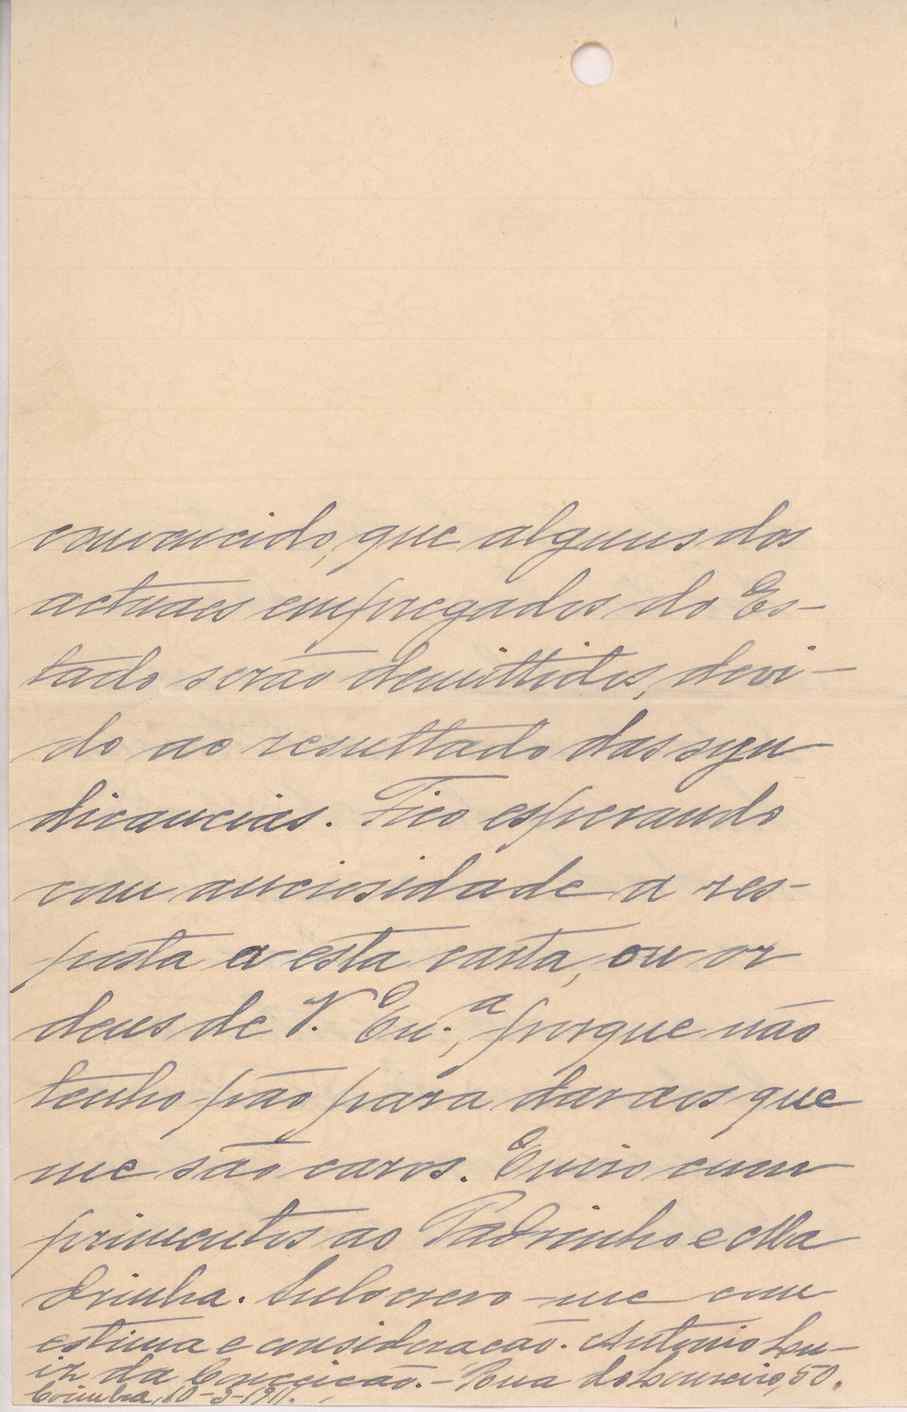 convencido, que alguns dos
actuaes empregados do Es-
tado serão demittidos, devi-
do ao resultado das syn-
dicancias. Fico esperando
com anciosidade a res-
posta a esta carta, ou or
dens de V. Ex.ª, porque não
tenho pão para dar aos que
me são caros. Envio cum
primentos ao Padrinho e Ma
drinha. Subscrevo-me com
estima e consideração. Antonio Lu-
iz da Conceição. - Rua do Loureiro, 50.
Coimbra, 10-3-1911.